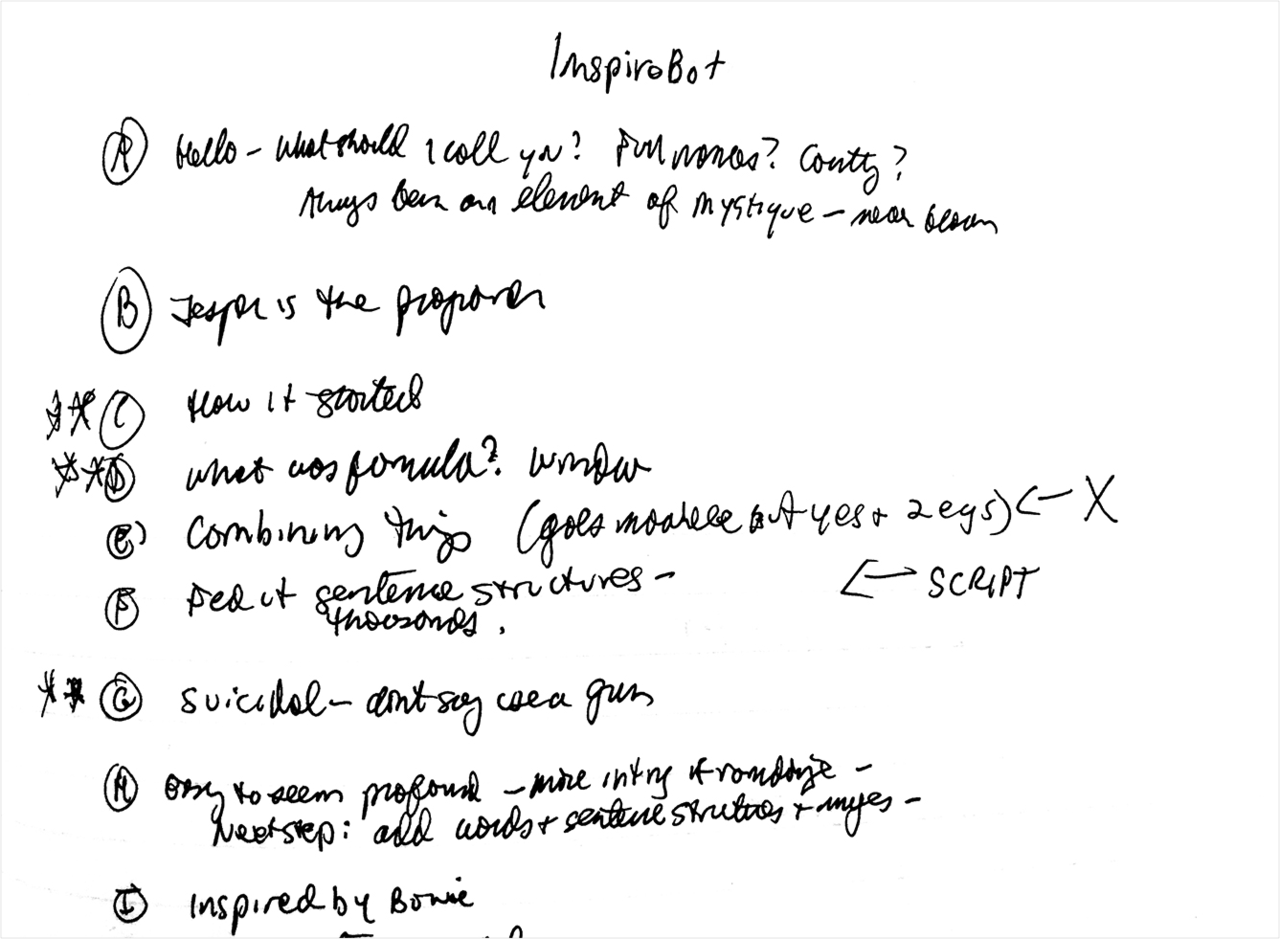 InspiroBot
A Hello - what should I call you? Full names? County?
Always been an element of mystique - near
B Jesper is the
C How it started
D what was formula? window
E combining things (goes ... yes + 2 eggs) <- X
F Fed it sentence structures -
thousands.
<-> SCRIPT
G Suicidal - dont say use a gun
H easy to seem profound - more if -
Next step: add words + sentence structures + images -
I Inspired by Bowie